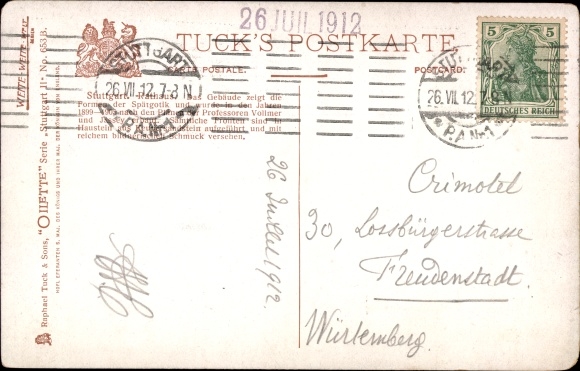 26 JUIL 1912
TUCK'S POSTKARTE.
CARTE POSTALE.
POSTCARD.
STUTTGART
26.VII.12.7-8 N.
STUTTGART
26.VII.12.7-8
5 5
DEUTSCHES REICH
Stuttgart. Rathaus. Das Gebäude zeigt die
Formen der Spätgotik und wurde in den Jahren
1899— nach den Plänen der Professoren Vollmer
und Jassoy erbaut. Sämtliche Fronten sind in
Haustein aufgeführt und mit
reichem bildnerischem Schmuck versehen.
26 Juillet 1912.
Crimotel
30, Lossbürgerstrasse
Freudenstadt.
Würtemberg.
Raphael Tuck & Sons, "OILETTE" Serie „Stuttgart II“ No. 653 B.
HOFLIEFERANTEN S. MAJ. DES KÖNIGS UND IHRER MAJ. DER KÖNIGIN